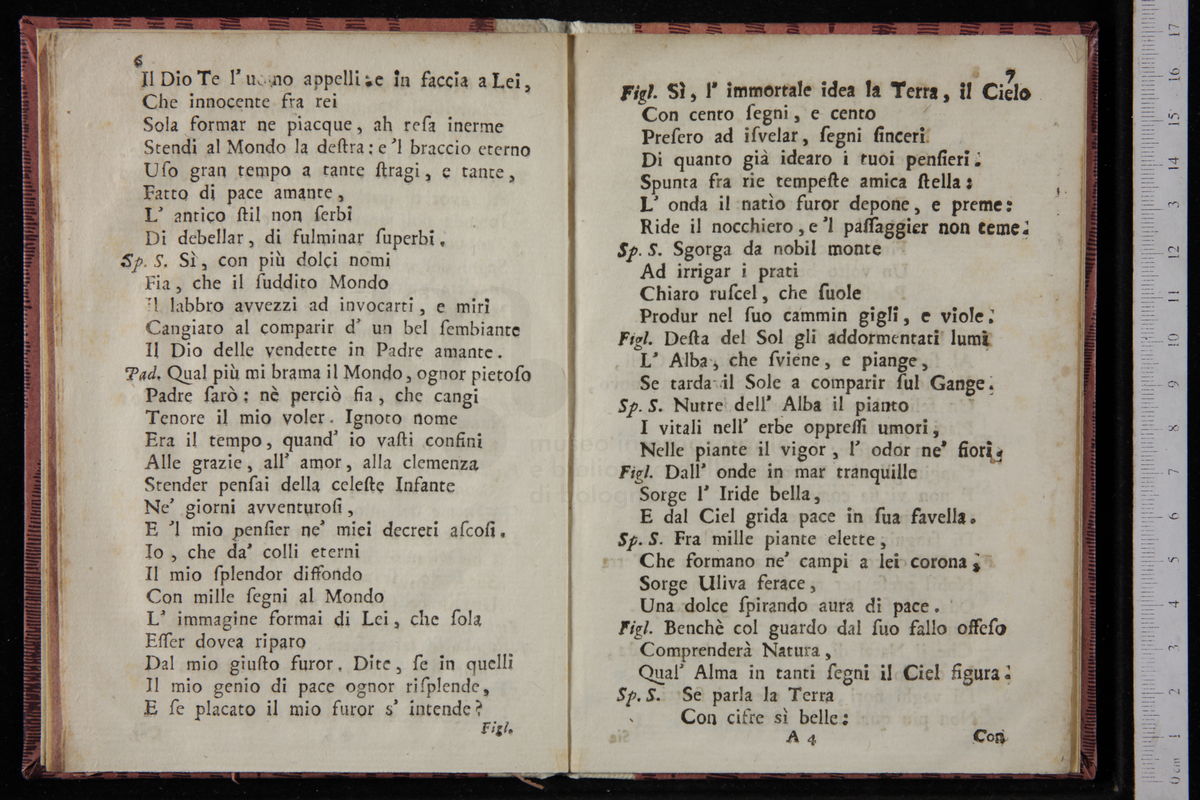 6
Il Dio Te l' uomo appelli: e in faccia a Lei,
Che innocente fra rei
Sola formar ne piacque, ah resa inerme
Stendi al Mondo la destra: e 'l braccio eterno
Uso gran tempo a tante stragi, e tante,
Fatto di pace amante,
L' antico stil non serbi
Di debellar, di fulminar superbi.
Sp. S. Sì, con più dolci nomi
Fia, che il suddito Mondo
Il labbro avvezzi ad invocarti, e miri
Cangiato al comparir d' un bel sembiante
Il Dio delle vendette in Padre amante.
Pad. Qual più mi brama il Mondo, ognor pietoso
Padre sarò: nè perciò fia, che cangi
Tenore il mio voler. Ignoto nome
Era il tempo, quand' io vasti confini
Alle grazie, all' amor, alla clemenza
Stender pensai della celeste Infante
Ne' giorni avventurosi,
E 'l mio pensier ne' miei decreti ascosi.
Io, che da' colli eterni
Il mio splendor diffondo
Con mille segni al Mondo
L' immagine formai di Lei, che sola
Esser dovea riparo
Dal mio giusto furor. Dite, se in quelli
Il mio genio di pace ognor risplende,
E se placato il mio furor s' intende?
Figl.
7
Figl. Sì, l' immortale idea la Terra, il Cielo
Con cento segni, e cento
Presero ad isvelar, segni sinceri
Di quanto già idearo i tuoi pensieri.
Spunta fra rie tempeste amica stella:
L' onda il natìo furor depone, e preme:
Ride il nocchiero, e 'l passaggier non teme.
Sp. S. Sgorga da nobil monte
Ad irrigar i prati
Chiaro ruscel, che suole
Produr nel suo cammin gigli, e viole.
Figl. Desta del Sol gli addormentati lumi
L' Alba, che sviene, e piange,
Se tarda il Sole a comparir sul Gange.
Sp. S. Nutre dell' Alba il pianto
I vitali nell' erbe oppressi umori,
Nelle piante il vigor, l' odor ne' fiori.
Figl. Dall' onde in mar tranquillo
Sorge l' Iride bella,
E dal Ciel grida pace in sua favella.
Sp. S. Fra mille piante elette,
Che formano ne' campi a lei corona,
Sorge Uliva ferace,
Una dolce spirando aura di pace.
Figl. Benchè col guardo dal suo fallo offeso
Comprenderà Natura,
Qual' Alma in tanti segni il Ciel figura.
Sp. S. Se parla la Terra
Con cifre sì belle:
A 4
Con